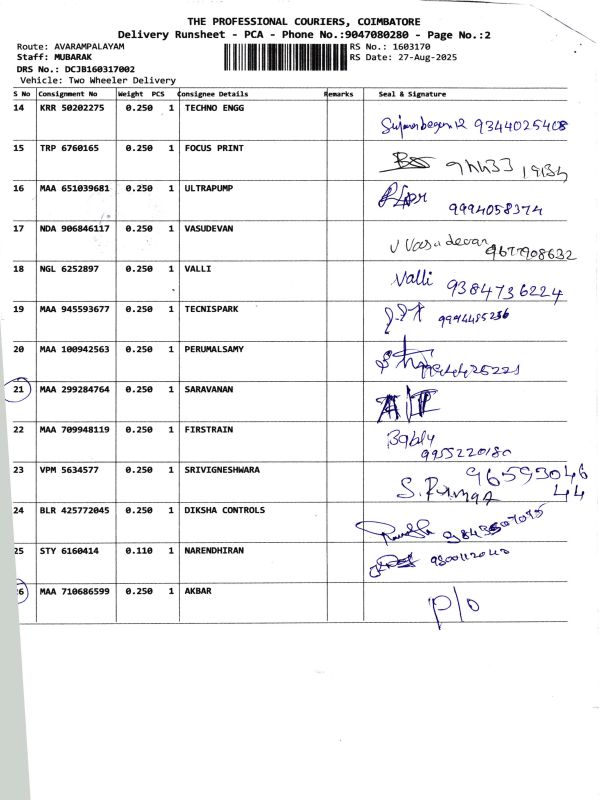 THE PROFESSIONAL COURIERS, COIMBATORE
Delivery Runsheet - PCA - Phone No.:9047080280 - Page No.:2
Route: AVARAMPALAYAM RS No.: 1603170
Staff: MUBARAK RS Date: 27-Aug-2025
DRS No.: DCJB160317002
Vehicle: Two Wheeler Delivery
S No Consignment No Weight PCS Consignee Details Remarks Seal & Signature
14 KRR 50202275 0.250 1 TECHNO ENGG
9344025408
15 TRP 6760165 0.250 1 FOCUS PRINT
16 MAA 651039681 0.250 1 ULTRAPUMP
9994058374
17 NDA 906846117 0.250 1 VASUDEVAN
V Vasudevan 9677908632
18 NGL 6252897 0.250 1 VALLI
Valli 9384736224
19 MAA 945593677 0.250 1 TECNISPARK
20 MAA 100942563 0.250 1 PERUMALSAMY
21 MAA 299284764 0.250 1 SARAVANAN
22 MAA 709948119 0.250 1 FIRSTRAIN
9955220180
23 VPM 5634577 0.250 1 SRIVIGNESHWARA
96593046
44
24 BLR 425772045 0.250 1 DIKSHA CONTROLS
25 STY 6160414 0.110 1 NARENDHIRAN
26 MAA 710686599 0.250 1 AKBAR
P/O